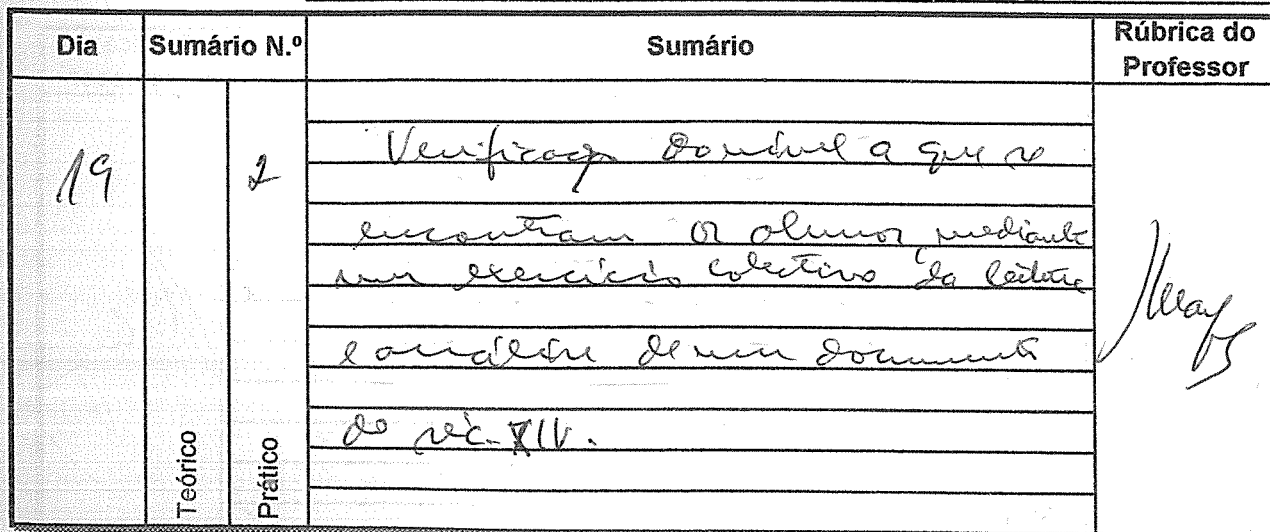 Dia Sumário N.º Sumário Rúbrica do Professor
19 2 Verificação do nível a que se
encontram os alunos mediante
um exercício coletivo da leitura
e análise de um documento
do séc. XIV.
Teórico Prático